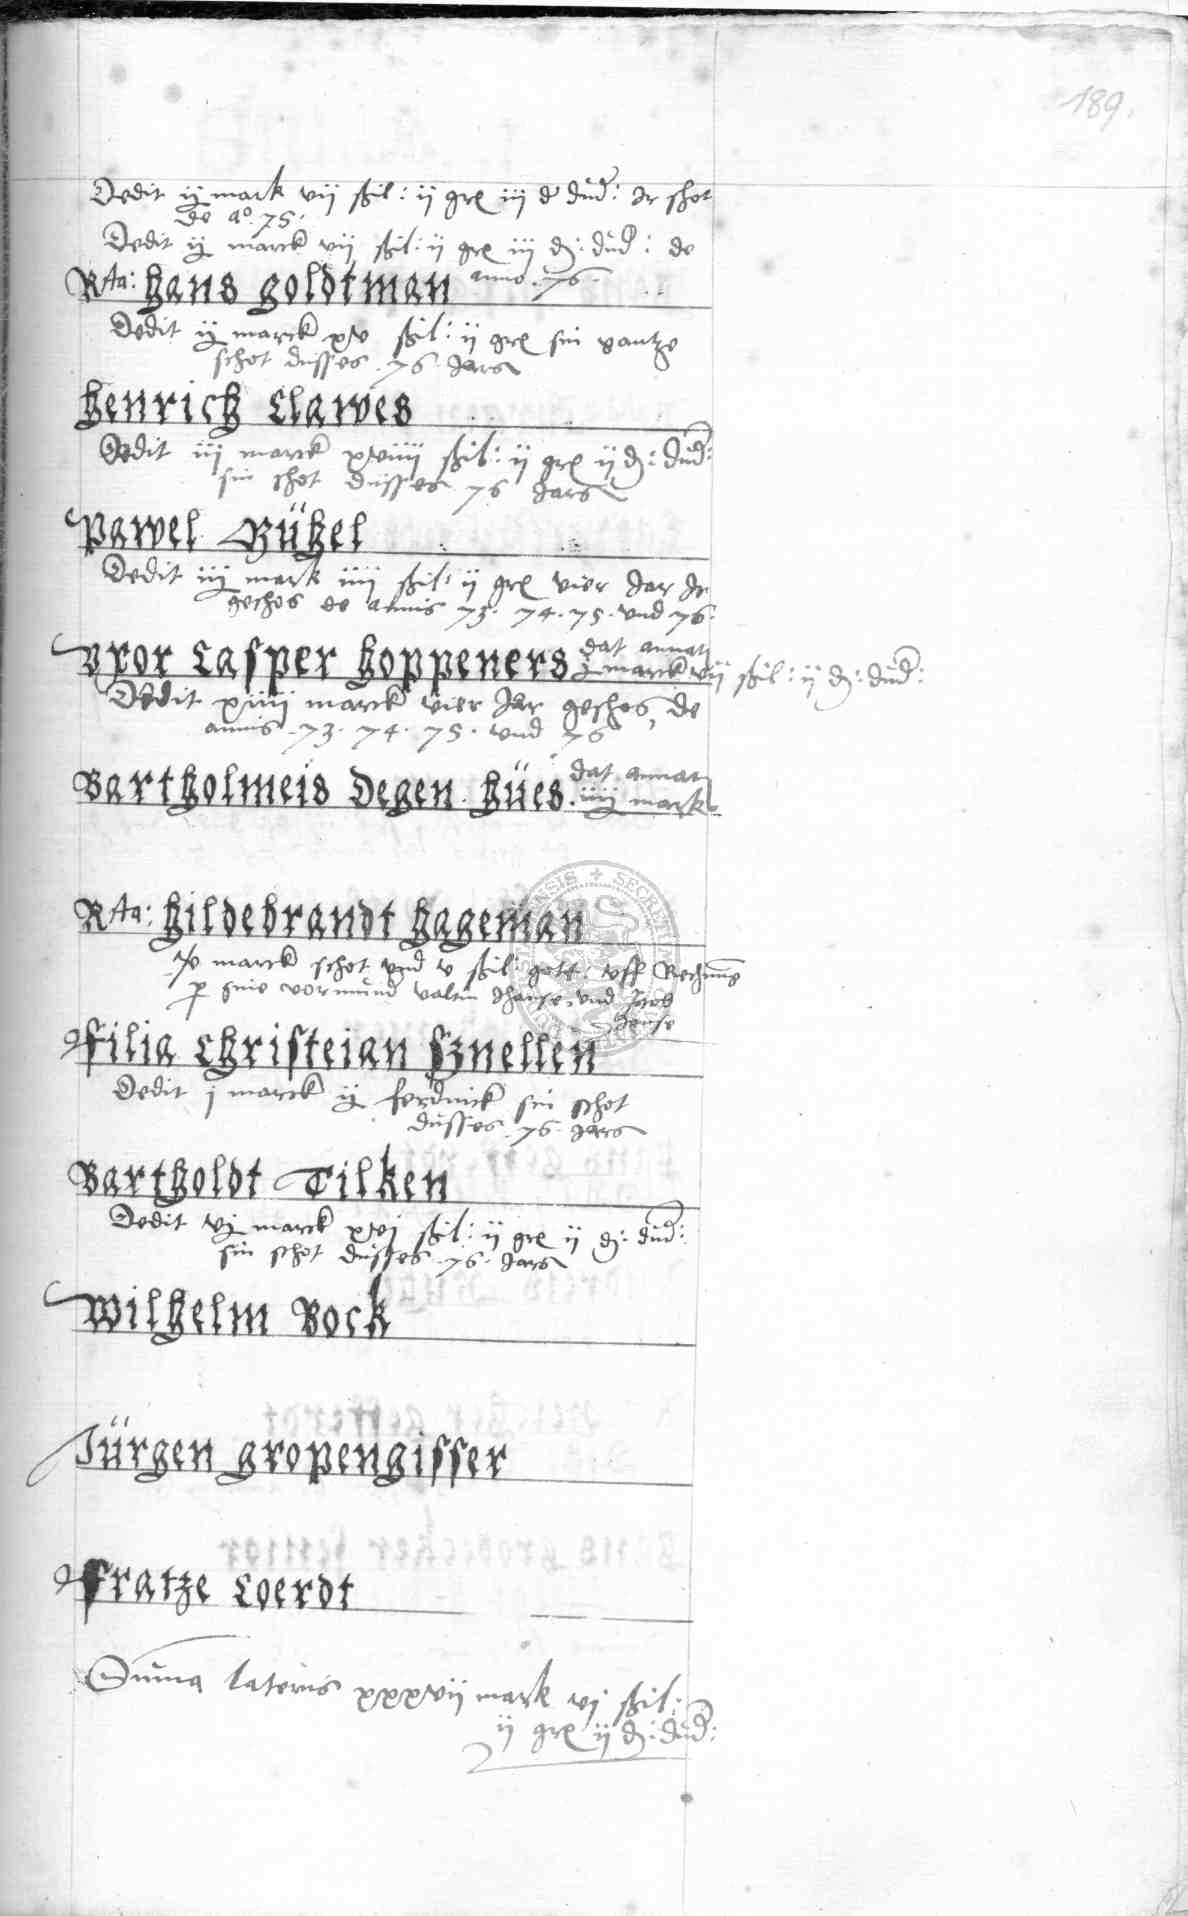 189.
Dedit ij mark vij ßkil: ij grl iij d dud: Ir schot
de ao. 75.
Dedit ij marck vij ßkil: ij grl iij d: dud: de
Rta: Hans Goldtman anno. 76.
Dedit ij marck xv ßkil: ij grl sin gantze
schot dusses .76. Jars
Henrich Clawes
Dedit iij marck xviiij ßkil: ij grl ij d: dud:
sin schot dusses 76 Jars
Pawel Bühel
Dedit iij mark iiij ßkil: ij grl vier Jar Ir
geschos de annis 73. 74. 75. und 76.
Vror Casper Hoppeners dat annatj
j marck vij ßkil: ij d: dud:
Dedit xiiij marck vier Jar geschos, de
annis .73. 74. 75. und 76
Bartholmeis Degen. Hües. dat annatj
iiij mark
Rta: Hildebrandt Hageman
marck schot und v ßkil: gott: uff Rechnung
p sine vormund Valtin und Jacob
Filia Christeian Sznellen
Dedit j marck ij ferdinck sin schot
dusses .76. Jars
Bartholdt Tilken
Dedit vj marck xvj ßkil: ij grl ij d: dud:
sin schot dusses .76. Jars
Wilhelm Bock
Jürgen Gropengisser
Fratze Coerdt
Suma lateris xxxvij mark vj ßkil:
ij grl ij d: dud: